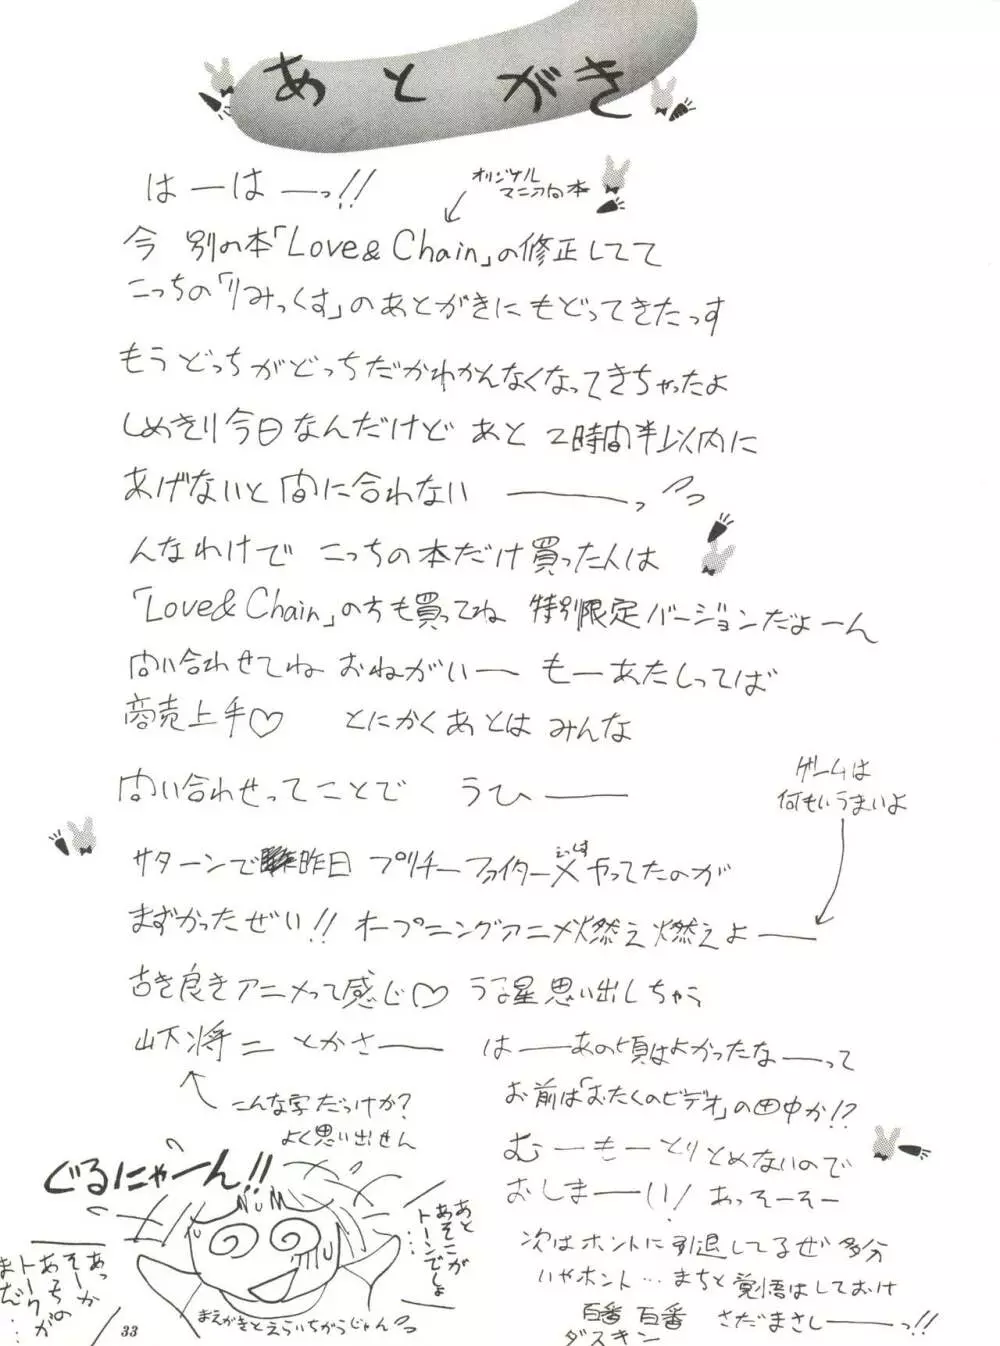 あとがき
はーはーっ!!
オリジナル
マニア向本
今 別の本「Love & Chain」の修正してて
こっちの「りみっくす」のあとがきにもどってきたっす
もうどっちがどっちだかわかんなくなってきちゃったよ
しめきり今日なんだけど あと 2時間半以内に
あげないと間に合わない ーーっ
んなわけで こっちの本だけ買った人は
「Love & Chain」の方も買ってね 特別限定バージョンだよーん
問い合わせてね おねがいー もーあたしってば
商売上手♡ とにかくあとは みんな
問い合わせってことで うひー
ゲームは
何もいうまいよ
サターンで昨日 プリチーファイターXやってたのが
まずかったぜい!! オープニングアニメ燃え燃えよー
古き良きアニメって感じ♡ うる星思い出しちゃう
山下将二 とかさー はーあの頃はよかったなーって
こんな字だっけか?
よく思い出せん
お前は「おたくのビデオ」の田中か!?
むーもーとりとめないので
おしまーい! あっそーそー
次はホントに引退してるぜ 多分
いやホント…まちと覚悟はしておけ
百番 百番 さだまさしーっ!!
ダスキン
ぐるにゃーん!!
NuM
あと
あそこが
トーンでしょ
……
あっか
そーか
あっちの
トークが
まだ…
まえがきとえらいちがうじゃん
33